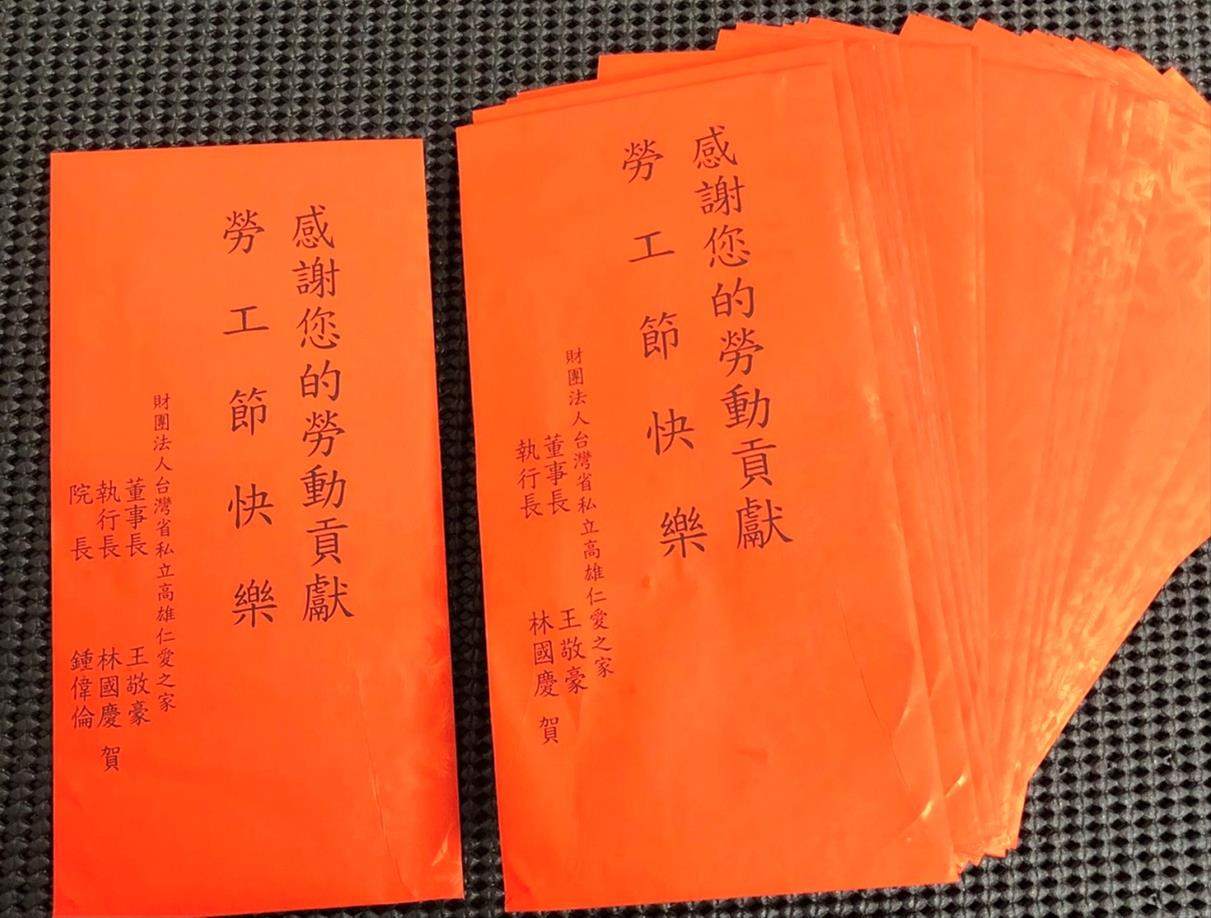 感謝您的勞動貢獻
勞工節快樂
財團法人台灣省私立高雄仁愛之家
董事長 王敬豪
執行長 林國慶 賀
院長 鍾偉倫
感謝您的勞動貢獻
勞工節快樂
財團法人台灣省私立高雄仁愛之家
董事長 王敬豪
執行長 林國慶 賀